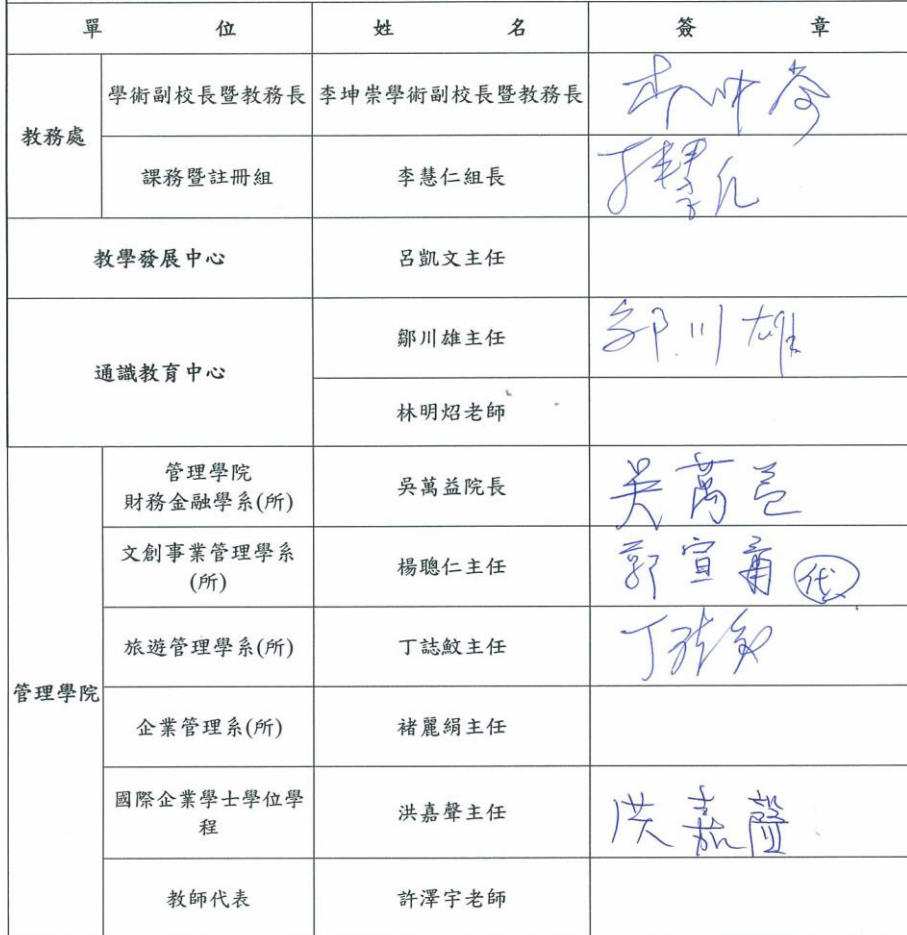 單 位 姓 名 簽 章
教務處
學術副校長暨教務長 李坤崇學術副校長暨教務長
課務暨註冊組 李慧仁組長
教學發展中心 呂凱文主任
通識教育中心
鄒川雄主任 鄒川雄
林明炤老師
管理學院
管理學院
財務金融學系(所) 吳萬益院長 吳萬益
文創事業管理學系
(所) 楊聰仁主任 郭宣甫 代
旅遊管理學系(所) 丁誌魰主任 丁誌魰
企業管理系(所) 褚麗絹主任
國際企業學士學位學
程 洪嘉聲主任 洪嘉聲
教師代表 許澤宇老師